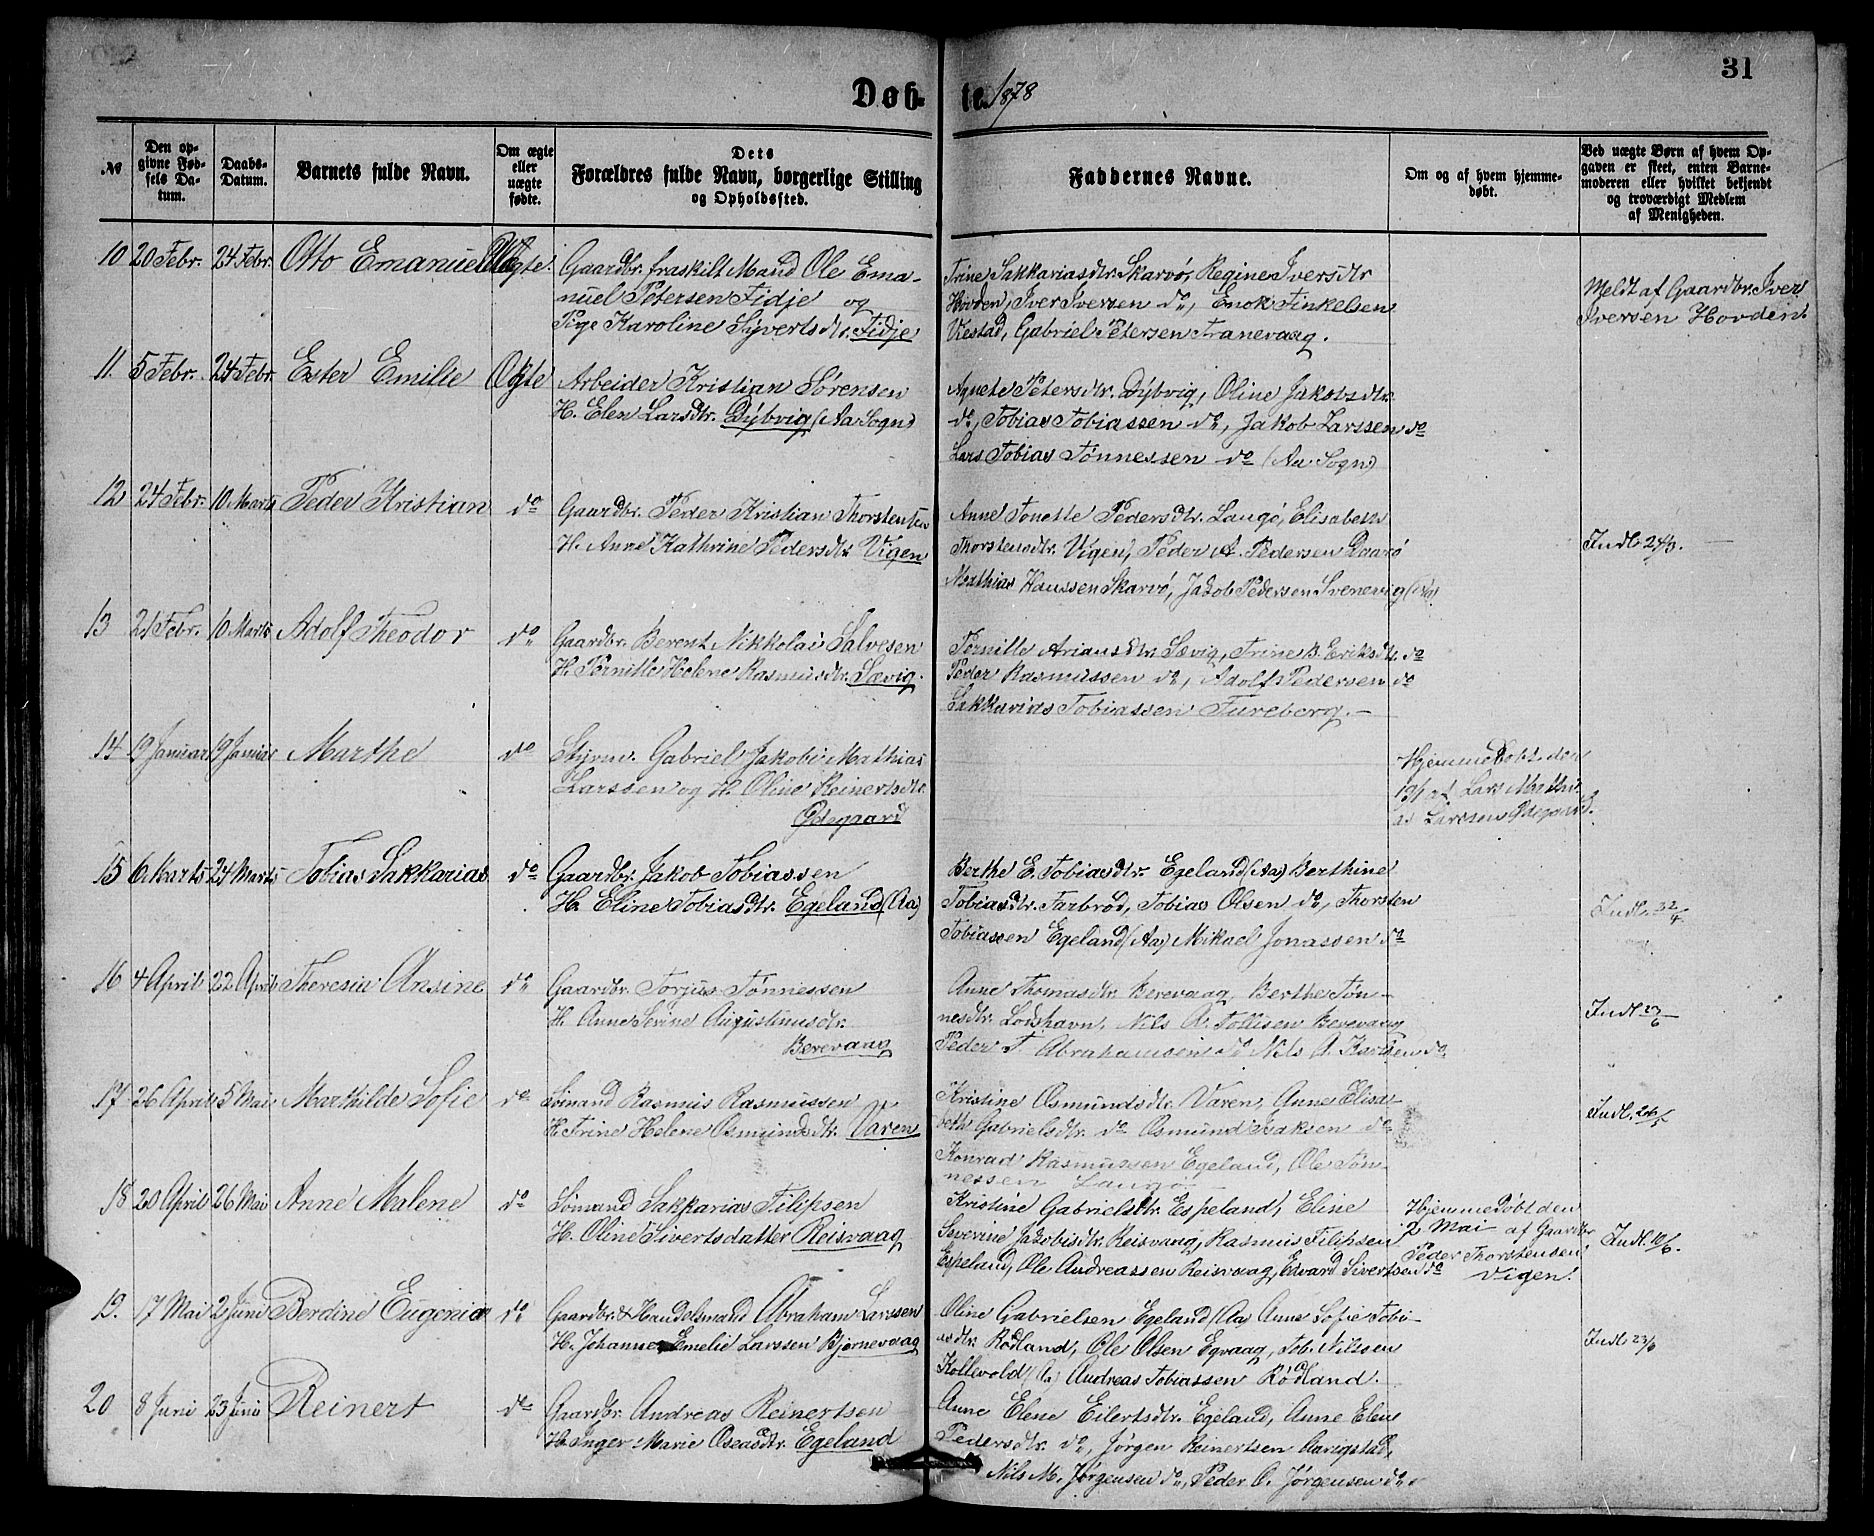 31
Døb-
te. 1878
№
Den op-
givne Fød-
sels Da-
tum.
Daabs-
Datum.
Barnets fulde Navn.
Om ægte
eller
uægte
fødte.
Dets
Forældres fulde Navn, borgerlige Stilling
og Opholdssted.
Faddernes Navne.
Om og af hvem hjemme-
døbt.
Ved uægte Børn af hvem Op-
gaven er skeet, enten Barne-
moderen eller hvilket bekjendt
og troværdigt Medlem
af Menigheden.
10 20 Febr. 24 Febr. Otto Emanuel Uægte.
Gaardbr. fraskilt Mand Ole Ema-
nuel Petersen Fidje og
Pige Karoline Syvertsdtr. Fidje
Trine Sakkariasdtr. Skarvø, Regine Iversdtr
Hovden, Iver Iversen do, Enok Finkelsen
Vestad, Gabriel Petersen Tranevaag.
Meldt af Gaardbr. Iver
Iversen Hovden.
11. 5 Febr. 24 Febr. Ester Emilie Ægte
Arbeider Kristian Sørensen
H. Elen Larsdtr. Dybvig (Aa Sogn)
Agnete Petersdtr. Dybvig, Oline Jakobsdtr.
do, Tobias Tobiassen do, Jakob Larssen do
Lars Tobias Tønnessen do (Aa Sogn)
12 24 Febr. 10 Marts Peder Kristian do
Gaardbr. Peder Kristian Thorstensen
H. Anne Kathrine Pedersdtr. Vigen
Anne Tonette Pedersdtr. Langø, Elisabeth
Thorstensdtr. Vigen, Peder A. Pedersen Daarø
Mathias Hanssen Skarvø, Jakob Pedersen Svenevig
Indl. 24/3.
13 21 Febr. 10 Marts Adolf Theodor do
Gaardbr. Berent Nikkolai Salvesen
H. Pernille Helene Rasmusdtr. Sævig.
Pernille Ariansdtr. Sævig, Trine B. Eriksdtr. do
Peder Rasmussen do, Adolf Pedersen do
Sakkarias Tobiassen Tureborg.
14 19 Januar 19 Januar Marthe do
Styrm. Gabriel Jakobi Mathias
Larssen og H. Oline Reinertsdtr.
Ødegaard
Hjemmedøbt den
19/1 af Lars Mathi-
as Larssen Ødegaard.
15 6 Marts 24 Marts Tobias Sakkarias do
Gaardbr. Jakob Tobiassen
H. Eline Tobiasdtr. Egeland (Aa)
Berthe E. Tobiasdtr. Egeland (Aa) Berthine
Tobiasdtr. Farbrod, Tobias Olsen do, Thorsten
Tobiassen Egeland (Aa) Mikael Jonassen do
Indl. 22/4.
16 4 April 22 April Theresia Ansine do
Gaardbr. Torjus Tønnessen
H. Anne Serine Augustinusdtr.
Berevaag
Anne Thomasdtr. Berevaag, Berthe Tøn-
nesdtr. Loshavn, Nils A. Tollisen Berevaag
Peder T. Abrahamsen do Nils A. Karlsen do
Indl. 23/6
17 26 April 5 Mai Marthilde Sofie do
Sømand Rasmus Rasmussen
H. Trine Helene Osmundsdtr. Varen
Kristine Osmundsdtr. Varen, Anne Elisa-
beth Gabrielsdtr. do Osmund Isaksen do
Konrad Rasmussen Egeland, Ole Tøn-
nessen Langø
Indl. 26/5
18 20 April 26 Mai Anne Malene do
Sømand Sakkarias Filipsen
H. Oline Sivertsdatter Reisvaag
Kristine Gabrielsdtr. Espeland, Eline
Severine Jakobsdtr. Reisvaag, Rasmus Filipsen
Espeland, Ole Andreassen Reisvaag, Edvard Sivertsen do
Hjemmedøbt den
2 Mai af Gaardbr
Peder Thorstensen
Vigen.
Indl. 10/6.
19. 17 Mai 2 Juni Berdine Eugenia do
Gaardbr. & Handelsmand Abraham Larssen
H. Johanne Emelie Larssen Bjørnevaag
Oline Gabrielsen Egeland (Aa) Anne Sofie Tobi-
asdtr. Rødland, Ole Olsen Egvaag, Tob. Nilssen
Kollevold (Aa) Andreas Tobiassen Rødland.
Indl. 23/6
20 8 Juni 23 Juni Reinert do
Gaardbr. Andreas Reinertsen
H. Inger Marie Oseasdtr. Egeland
Anne Elene Eilertsdtr. Egeland, Anne Elene
Pedersdtr. do, Jørgen Reinertsen Aarigstad,
Nils M. Jørgensen do, Peder O. Jørgensen do